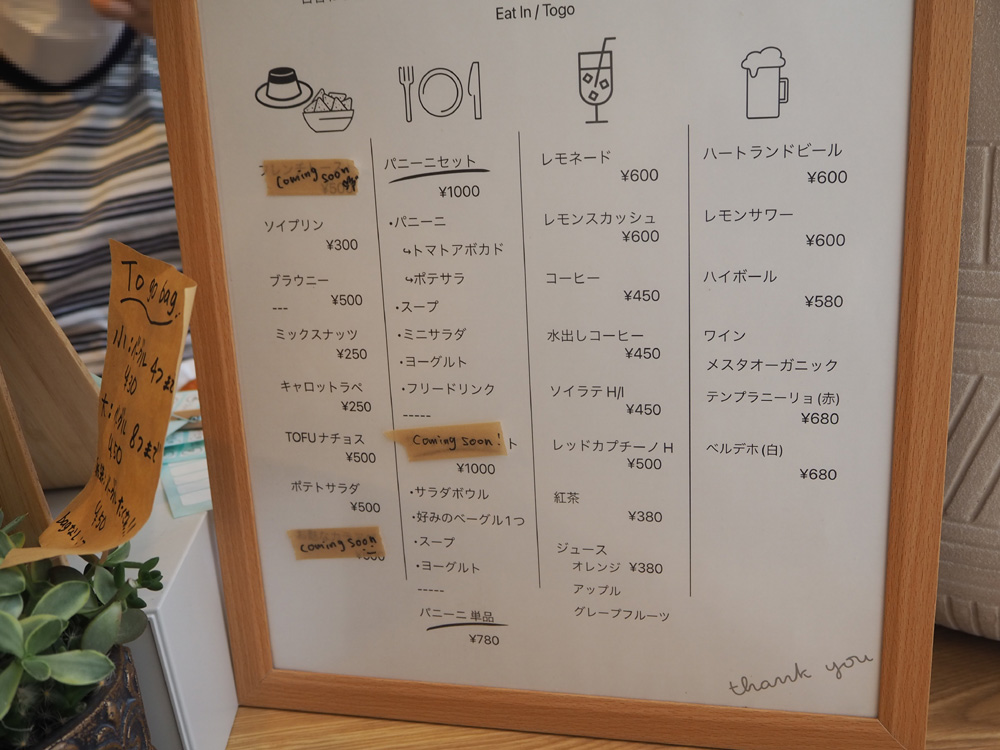 Eat In / Togo
Coming soon
ソイプリン
¥300
ブラウニー
¥500
---
ミックスナッツ
¥250
キャロットラペ
¥250
TOFUナチョス
¥500
ポテトサラダ
¥500
coming soon
パニーニセット
¥1000
・パニーニ
↳トマトアボカド
↳ポテサラ
・スープ
・ミニサラダ
・ヨーグルト
・フリードリンク
-----
Coming soon!
ト
¥1000
・サラダボウル
・好みのベーグル1つ
・スープ
・ヨーグルト
-----
パニーニ 単品
¥780
レモネード
¥600
レモンスカッシュ
¥600
コーヒー
¥450
水出しコーヒー
¥450
ソイラテ H/I
¥450
レッドカプチーノ H
¥500
紅茶
¥380
ジュース
オレンジ ¥380
アップル
グレープフルーツ
ハートランドビール
¥600
レモンサワー
¥600
ハイボール
¥580
ワイン
メスタオーガニック
テンプラニーリョ(赤)
¥680
ベルデホ(白)
¥680
thank you
To go bag
小:ベーグル 4つまで
¥30
大:ベーグル 8つまで
¥50